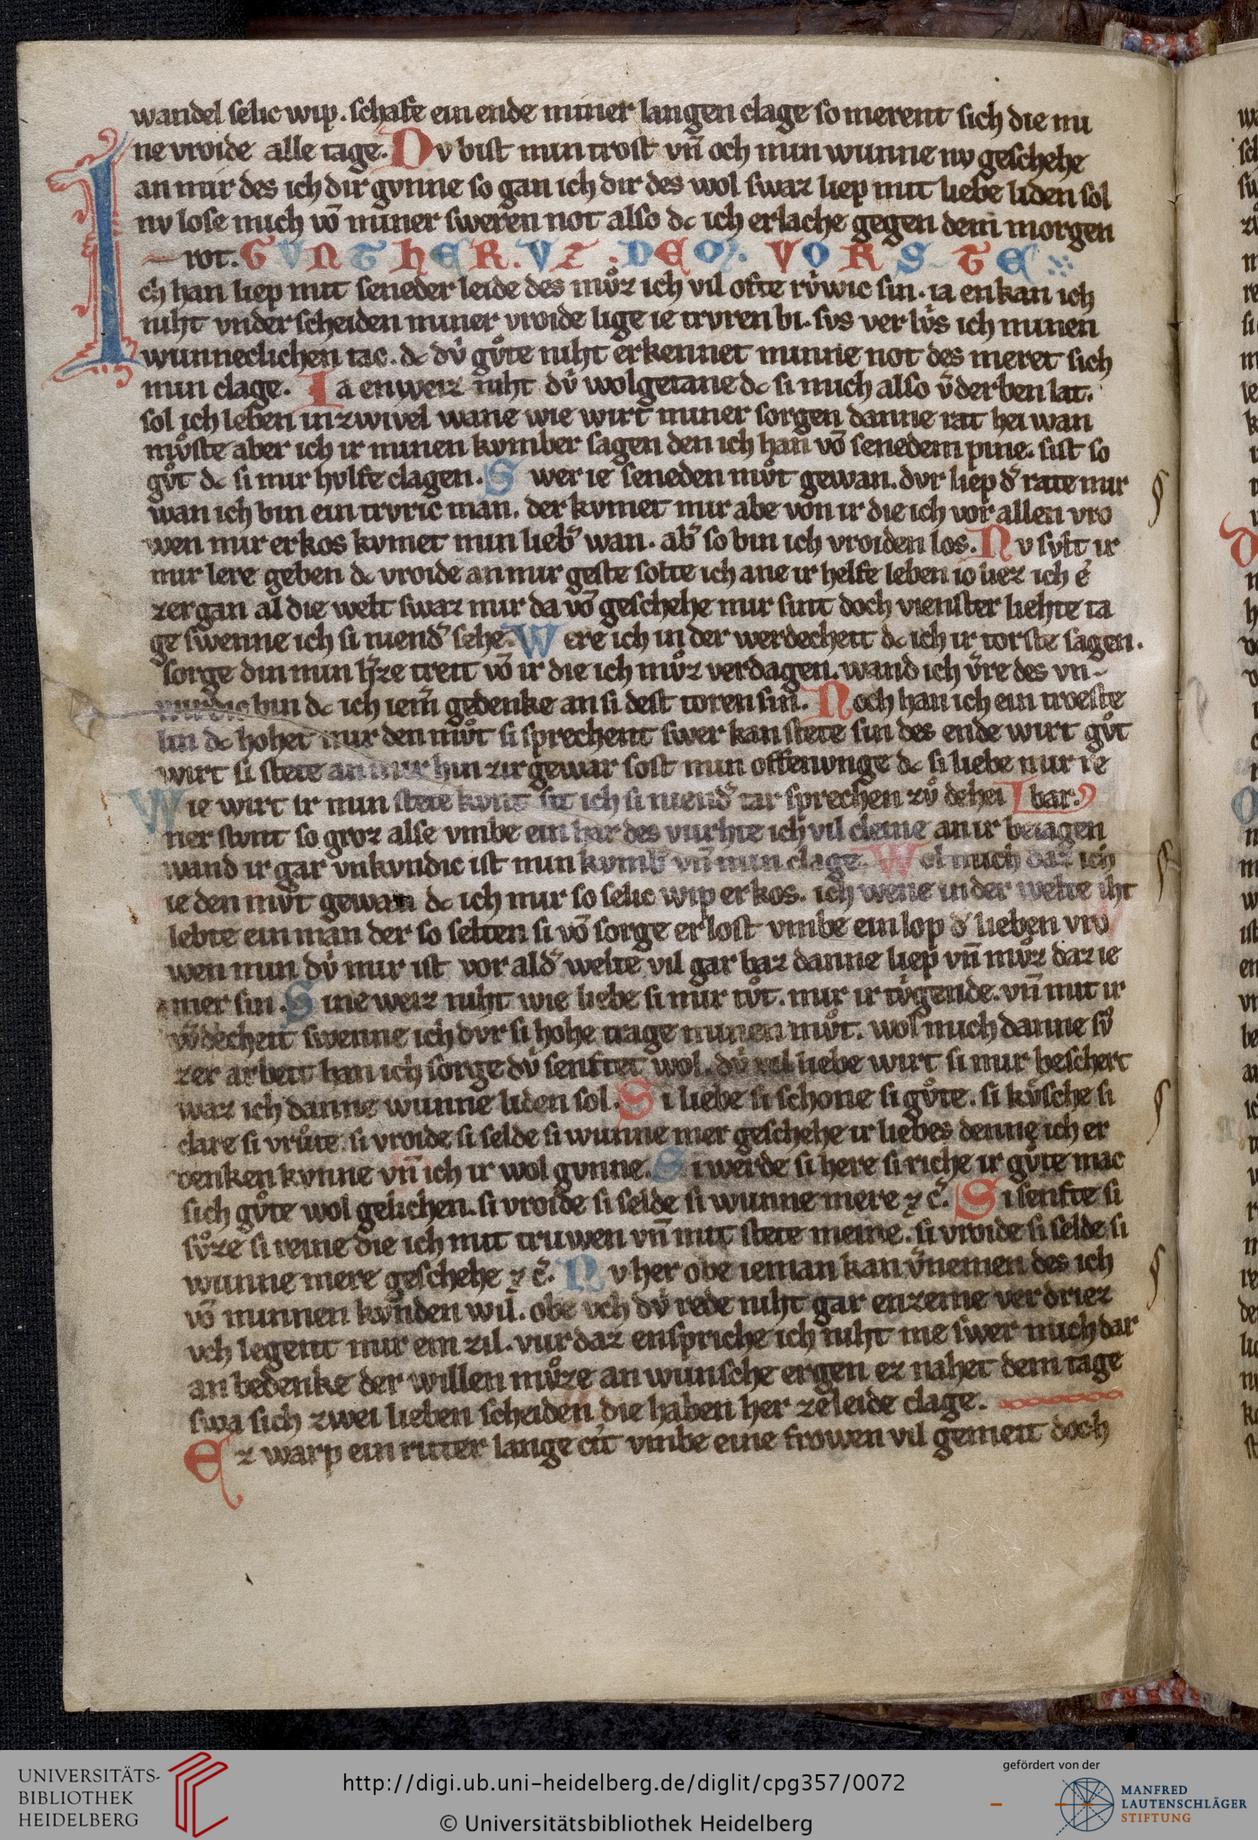 wandel selic wip. schafe ein ende miner langen clage so merent sich die mi
ne vroide alle tage. Dv bist min trost vn̄ och min wunne nv geschehe
an mir des ich dir gvnne so gan ich dir des wol swaz liep mit liebe liden sol
nv lose mich vō miner sweren not also dc ich erlache gegen dem morgen
rot. GVNTHER. VZ. DEM. VORSTE
Ich han liep mit seneder leide des mvͦz ich vil ofte rv́wic sin. ia enkan ich
niht vnderscheiden miner vroide lige ie trvren bi. svs verlv́s ich minen
wunneclichen tac. dc dv́ gvͦte niht erkennet minne not des meret sich
min clage. Ia enweiz niht dv́ wolgetane dc si mich also v̄derben lat.
sol ich leben in zwivel wane wie wirt miner sorgen danne rat hei wan
mvͦste aber ich ir minen kvmber sagen den ich han vō senedem pine. sist so
gvͦt dc si mir hvlfe clagen. Swer ie seneden mvͦt gewan. dvr liep d̾ rate mir
wan ich bin ein trvric man. der kvmet mir abe von ir die ich vor allen vro
wen mir erkos kvmet min lieb̾ wan. ab̾ so bin ich vroiden los. Nv svlt ir
mir lere geben dc vroide an mir geste solte ich ane ir helfe leben io liez ich e
zergan al die welt swaz mir da vō geschehe mir sint doch vienster liehte ta
ge swenne ich si niend̾ sehe. Were ich in der werdecheit dc ich ir torste sagen.
sorge din min h̾ze treit vō ir die ich mvͦz verdagen. wand ich v̄re des vn
wirdic bin dc ich iem̄ gedenke an si dest toren sin. Noch han ich ein troeste
lin dc hohet mir den mvͦt si sprechent swer kan stete sin des ende wirt gvͦt
wirt si stete an mir hin zir gewar sost min offenvnge dc si liebe mir re
Wie wirt ir min stete kvnt sit ich si niend̾ tar sprechen zvͦ dehei bar.
ner stvnt so groz alse vmbe ein har des vurhte ich vil cleine an ir beiagen
wand ir gar vnkvndic ist min kvmb̾ vn̄ min clage. Wol mich daz ich
ie den mvͦt gewan dc ich mir so selic wip erkos. ich wene in der welte iht
lebte ein man der so selten si vō sorge erlost vmbe ein lop d̾ lieben vro
wen min dv́ mir ist vor ald̾ welte vil gar baz danne liep vn̄ mvͦz daz ie
mer sin. Sine weiz niht wie liebe si mir tvͦt. mir ir tv́gende. vn̄ mit ir
w̾decheit swenne ich dvr si hohe trage minen mvͦt. wol mich danne sv́
zer arbeit han ich sorge dv́ senftet wol. dv́ vil liebe wirt si mir beschert
waz ich danne wunne liden sol. Si liebe si schone si gvͦte. si kv́sche si
clare si vrvͦte. si vroide si selde si wunne mer geschehe ir liebes denne ich er
denken kvnne vn̄ ich ir wol gvnne. Si werde si here si riche ir gvͦte mac
sich gvͦte wol gelichen. si vroide si selde si wunne mere ⁊ c̾. Si senfte si
svͦze si reine die ich mit truwen vn̄ mit stete meine. si vroide si selde si
wunne mere geschehe ⁊ c̾. Nv her obe ieman kan v̄nemen des ich
vō minnen kv́nden wil. obe vch dv́ rede niht gar enzeme verdriez
vch legent mir ein zil. vur daz enspriche ich niht me swer mich dar
an bedenke der willen mvͦze an wunsche ergen ez nahet dem tage
swa sich zwei lieben scheiden die haben her ze leide clage.
Ez warp ein ritter lange cit vmbe eine frowen vil gemeit doch
UNIVERSITÄTS-
BIBLIOTHEK
HEIDELBERG
http://digi.ub.uni-heidelberg.de/diglit/cpg357/0072
© Universitätsbibliothek Heidelberg
gefördert von der
MANFRED
LAUTENSCHLÄGER
STIFTUNG